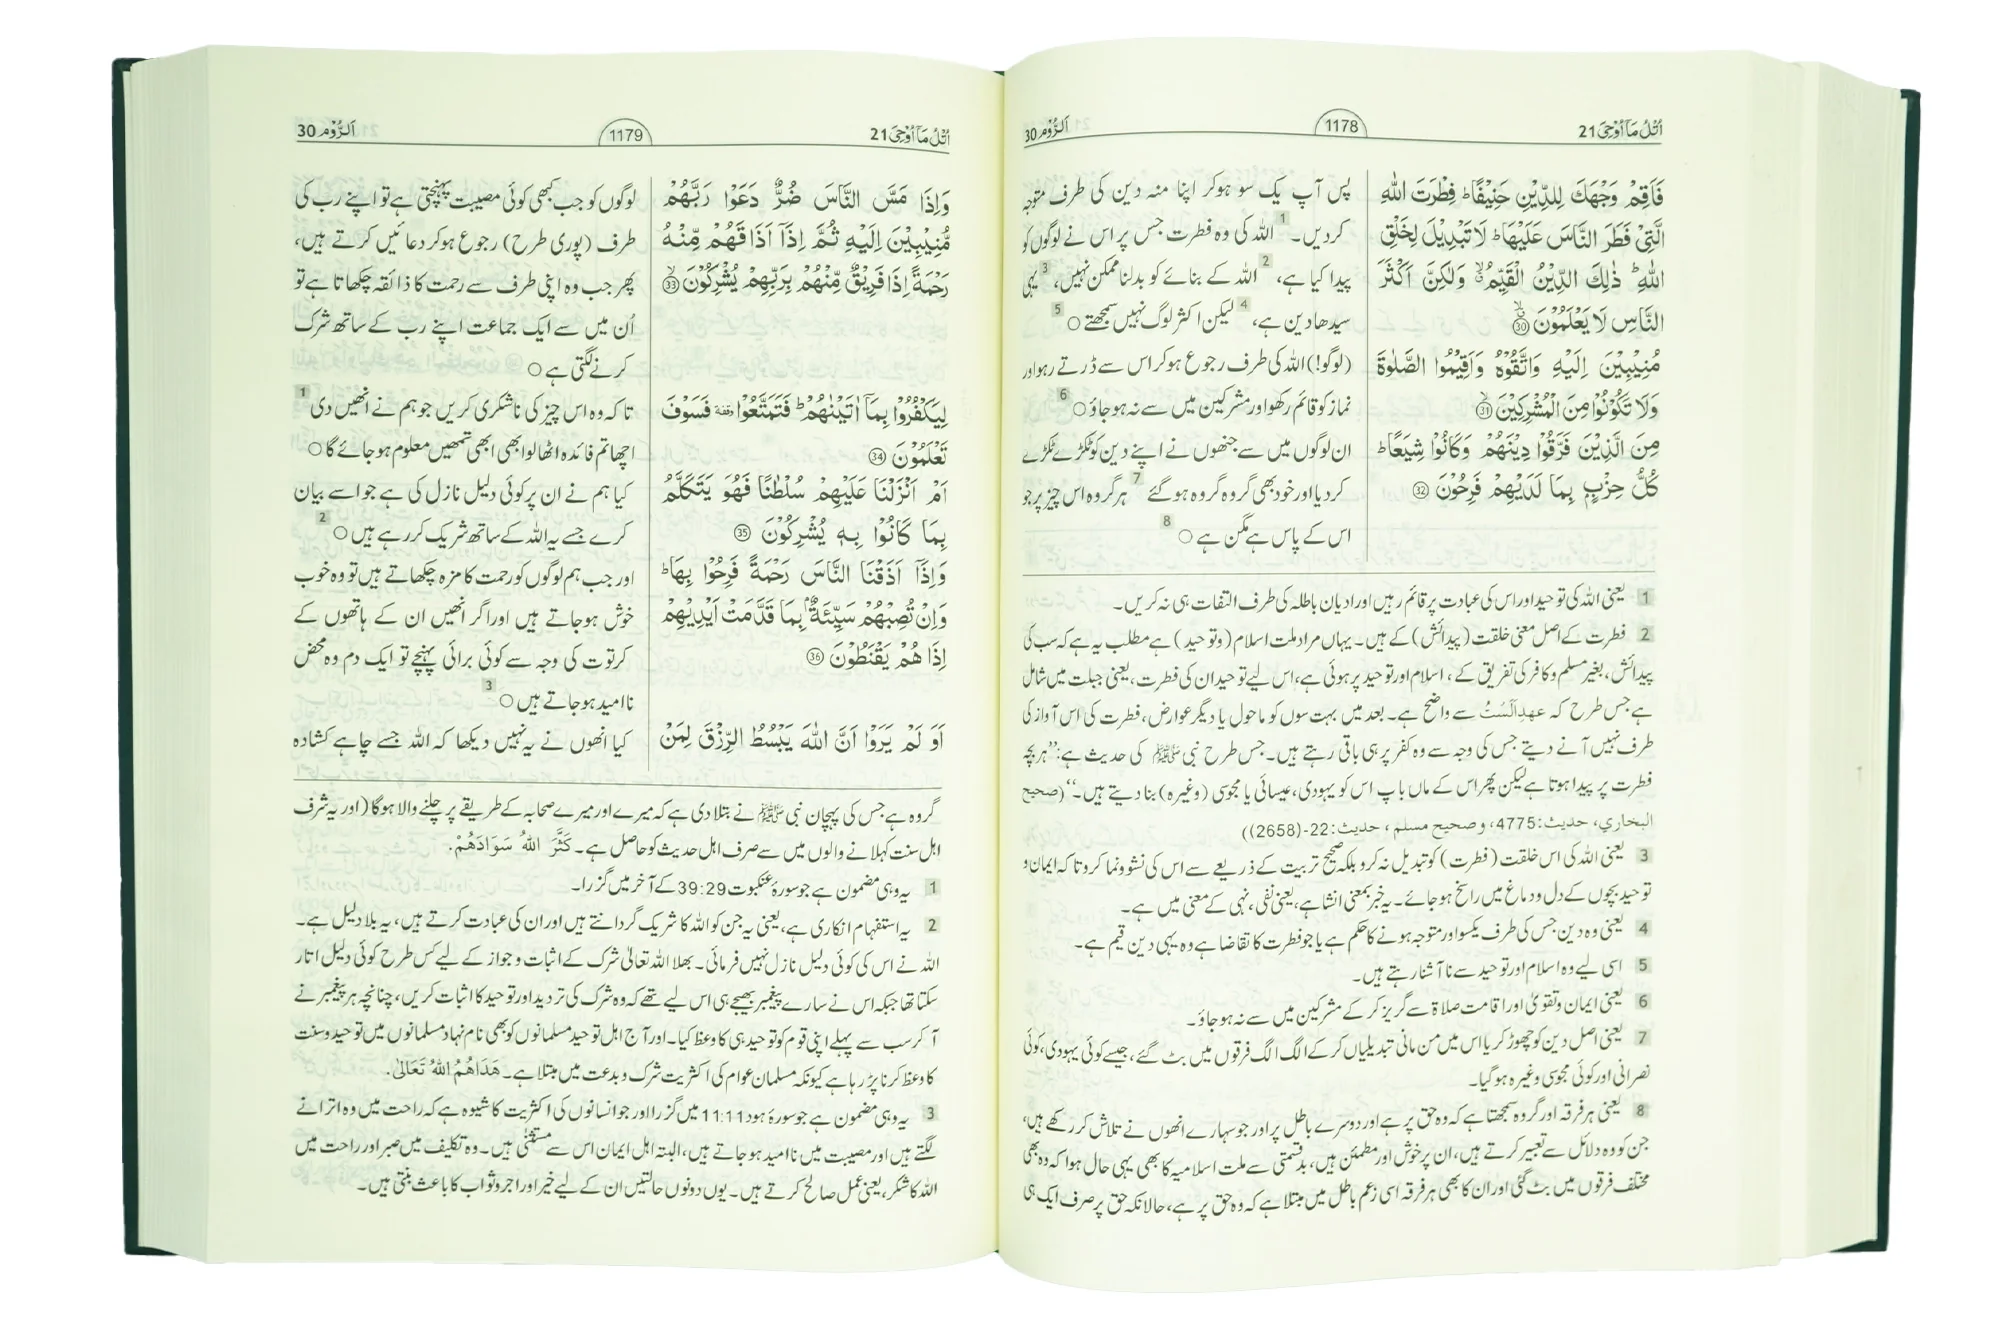 اُتْلُ مَآ اُوْحِیَ 21
1178
اَلرُّوْم 30
فَاَقِمْ وَجْهَكَ لِلدِّيْنِ حَنِيْفًا ؕ فِطْرَتَ اللّٰهِ
الَّتِيْ فَطَرَ النَّاسَ عَلَيْهَا ؕ لَا تَبْدِيْلَ لِخَلْقِ
اللّٰهِ ؕ ذٰلِكَ الدِّيْنُ الْقَيِّمُ ۙ وَلٰكِنَّ اَكْثَرَ
النَّاسِ لَا يَعْلَمُوْنَ ۙ 30
مُنِيْبِيْنَ اِلَيْهِ وَاتَّقُوْهُ وَاَقِيْمُوا الصَّلٰوةَ
وَلَا تَكُوْنُوْا مِنَ الْمُشْرِكِيْنَ ۙ 31
مِنَ الَّذِيْنَ فَرَّقُوْا دِيْنَهُمْ وَكَانُوْا شِيَعًا ؕ
كُلُّ حِزْبٍۭ بِمَا لَدَيْهِمْ فَرِحُوْنَ 32
پس آپ یک سو ہوکر اپنا منہ دین کی طرف متوجہ
کردیں۔ 1 اللہ کی وہ فطرت جس پر اس نے لوگوں کو
پیدا کیا ہے، 2 اللہ کے بنائے کو بدلنا ممکن نہیں، 3 یہی
سیدھا دین ہے، 4 لیکن اکثر لوگ نہیں سمجھتے ○ 5
(لوگو!) اللہ کی طرف رجوع ہوکر اس سے ڈرتے رہو اور
نماز کو قائم رکھو اور مشرکین میں سے نہ ہوجاؤ ○ 6
ان لوگوں میں سے جنھوں نے اپنے دین کو ٹکڑے ٹکڑے
کردیا اور خود بھی گروہ گروہ ہوگئے 7 ہر گروہ اس چیز پر جو
اس کے پاس ہے مگن ہے ○ 8
1 یعنی اللہ کی توحید اور اس کی عبادت پر قائم رہیں اور ادیان باطلہ کی طرف التفات ہی نہ کریں۔
2 فطرت کے اصل معنی خلقت (پیدائش) کے ہیں۔ یہاں مراد ملت اسلام (و توحید) ہے مطلب یہ ہے کہ سب کی
پیدائش، بغیر مسلم و کافر کی تفریق کے، اسلام اور توحید پر ہوئی ہے، اس لیے توحید ان کی فطرت، یعنی جبلت میں شامل
ہے جس طرح کہ عہدِ اَلَسْتُ سے واضح ہے۔ بعد میں بہت سوں کو ماحول یا دیگر عوارض، فطرت کی اس آواز کی
طرف نہیں آنے دیتے جس کی وجہ سے وہ کفر پر ہی باقی رہتے ہیں۔ جس طرح نبی ﷺ کی حدیث ہے: ”ہر بچہ
فطرت پر پیدا ہوتا ہے لیکن پھر اس کے ماں باپ اس کو یہودی، عیسائی یا مجوسی (وغیرہ) بنا دیتے ہیں۔“ (صحیح
البخاري، حدیث:4775، و صحیح مسلم، حدیث:22-(2658))
3 یعنی اللہ کی اس خلقت (فطرت) کو تبدیل نہ کرو بلکہ صحیح تربیت کے ذریعے سے اس کی نشوونما کرو تاکہ ایمان و
توحید بچوں کے دل و دماغ میں راسخ ہوجائے۔ یہ خبر بمعنی انشا ہے، یعنی نفی، نہی کے معنی میں ہے۔
4 یعنی وہ دین جس کی طرف یکسو اور متوجہ ہونے کا حکم ہے یا جو فطرت کا تقاضا ہے وہ یہی دین قیم ہے۔
5 اسی لیے وہ اسلام اور توحید سے ناآشنا رہتے ہیں۔
6 یعنی ایمان و تقویٰ اور اقامت صلاۃ سے گریز کرکے مشرکین میں سے نہ ہوجاؤ۔
7 یعنی اصل دین کو چھوڑ کر یا اس میں من مانی تبدیلیاں کرکے الگ الگ فرقوں میں بٹ گئے، جیسے کوئی یہودی، کوئی
نصرانی اور کوئی مجوسی وغیرہ ہوگیا۔
8 یعنی ہر فرقہ اور گروہ سمجھتا ہے کہ وہ حق پر ہے اور دوسرے باطل پر اور جو سہارے انھوں نے تلاش کر رکھے ہیں،
جن کو وہ دلائل سے تعبیر کرتے ہیں، ان پر خوش اور مطمئن ہیں، بدقسمتی سے ملت اسلامیہ کا بھی یہی حال ہوا کہ وہ بھی
مختلف فرقوں میں بٹ گئی اور ان کا بھی ہر فرقہ اسی زعم باطل میں مبتلا ہے کہ وہ حق پر ہے، حالانکہ حق پر صرف ایک ہی
اُتْلُ مَآ اُوْحِیَ 21
1179
اَلرُّوْم 30
وَاِذَا مَسَّ النَّاسَ ضُرٌّ دَعَوْا رَبَّهُمْ
مُّنِيْبِيْنَ اِلَيْهِ ثُمَّ اِذَآ اَذَاقَهُمْ مِّنْهُ
رَحْمَةً اِذَا فَرِيْقٌ مِّنْهُمْ بِرَبِّهِمْ يُشْرِكُوْنَ ۙ 33
لِيَكْفُرُوْا بِمَآ اٰتَيْنٰهُمْ ؕ فَتَمَتَّعُوْا وقفة فَسَوْفَ
تَعْلَمُوْنَ 34
اَمْ اَنْزَلْنَا عَلَيْهِمْ سُلْطٰنًا فَهُوَ يَتَكَلَّمُ
بِمَا كَانُوْا بِهٖ يُشْرِكُوْنَ 35
وَاِذَآ اَذَقْنَا النَّاسَ رَحْمَةً فَرِحُوْا بِهَا ؕ
وَاِنْ تُصِبْهُمْ سَيِّئَةٌۢ بِمَا قَدَّمَتْ اَيْدِيْهِمْ
اِذَا هُمْ يَقْنَطُوْنَ 36
اَوَ لَمْ يَرَوْا اَنَّ اللّٰهَ يَبْسُطُ الرِّزْقَ لِمَنْ
لوگوں کو جب کبھی کوئی مصیبت پہنچتی ہے تو اپنے رب کی
طرف (پوری طرح) رجوع ہوکر دعائیں کرتے ہیں،
پھر جب وہ اپنی طرف سے رحمت کا ذائقہ چکھاتا ہے تو
اُن میں سے ایک جماعت اپنے رب کے ساتھ شرک
کرنے لگتی ہے ○
تاکہ وہ اس چیز کی ناشکری کریں جو ہم نے انھیں دی 1
اچھا تم فائدہ اٹھا لو ابھی ابھی تمھیں معلوم ہوجائے گا ○
کیا ہم نے ان پر کوئی دلیل نازل کی ہے جو اسے بیان
کرے جسے یہ اللہ کے ساتھ شریک کر رہے ہیں ○ 2
اور جب ہم لوگوں کو رحمت کا مزہ چکھاتے ہیں تو وہ خوب
خوش ہوجاتے ہیں اور اگر انھیں ان کے ہاتھوں کے
کرتوت کی وجہ سے کوئی برائی پہنچے تو ایک دم وہ محض
ناامید ہوجاتے ہیں ○ 3
کیا انھوں نے یہ نہیں دیکھا کہ اللہ جسے چاہے کشادہ
گروہ ہے جس کی پہچان نبی ﷺ نے بتلا دی ہے کہ میرے اور میرے صحابہ کے طریقے پر چلنے والا ہوگا (اور یہ شرف
اہل سنت کہلانے والوں میں سے صرف اہل حدیث کو حاصل ہے۔ كَثَّرَ اللّٰهُ سَوَادَهُمْ.
1 یہ وہی مضمون ہے جو سورۂ عنکبوت 39:29 کے آخر میں گزرا۔
2 یہ استفہام انکاری ہے، یعنی یہ جن کو اللہ کا شریک گردانتے ہیں اور ان کی عبادت کرتے ہیں، یہ بلا دلیل ہے۔
اللہ نے اس کی کوئی دلیل نازل نہیں فرمائی۔ بھلا اللہ تعالیٰ شرک کے اثبات و جواز کے لیے کس طرح کوئی دلیل اتار
سکتا تھا جبکہ اس نے سارے پیغمبر بھیجے ہی اس لیے تھے کہ وہ شرک کی تردید اور توحید کا اثبات کریں، چنانچہ ہر پیغمبر نے
آ کر سب سے پہلے اپنی قوم کو توحید ہی کا وعظ کیا۔ اور آج اہل توحید مسلمانوں کو بھی نام نہاد مسلمانوں میں توحید و سنت
کا وعظ کرنا پڑ رہا ہے کیونکہ مسلمان عوام کی اکثریت شرک و بدعت میں مبتلا ہے۔ هَدَاهُمُ اللّٰهُ تَعَالٰى.
3 یہ وہی مضمون ہے جو سورۂ ہود 11:11 میں گزرا اور جو انسانوں کی اکثریت کا شیوہ ہے کہ راحت میں وہ اترانے
لگتے ہیں اور مصیبت میں ناامید ہوجاتے ہیں، البتہ اہل ایمان اس سے مستثنیٰ ہیں۔ وہ تکلیف میں صبر اور راحت میں
اللہ کا شکر، یعنی عمل صالح کرتے ہیں۔ یوں دونوں حالتیں ان کے لیے خیر اور اجر و ثواب کا باعث بنتی ہیں۔